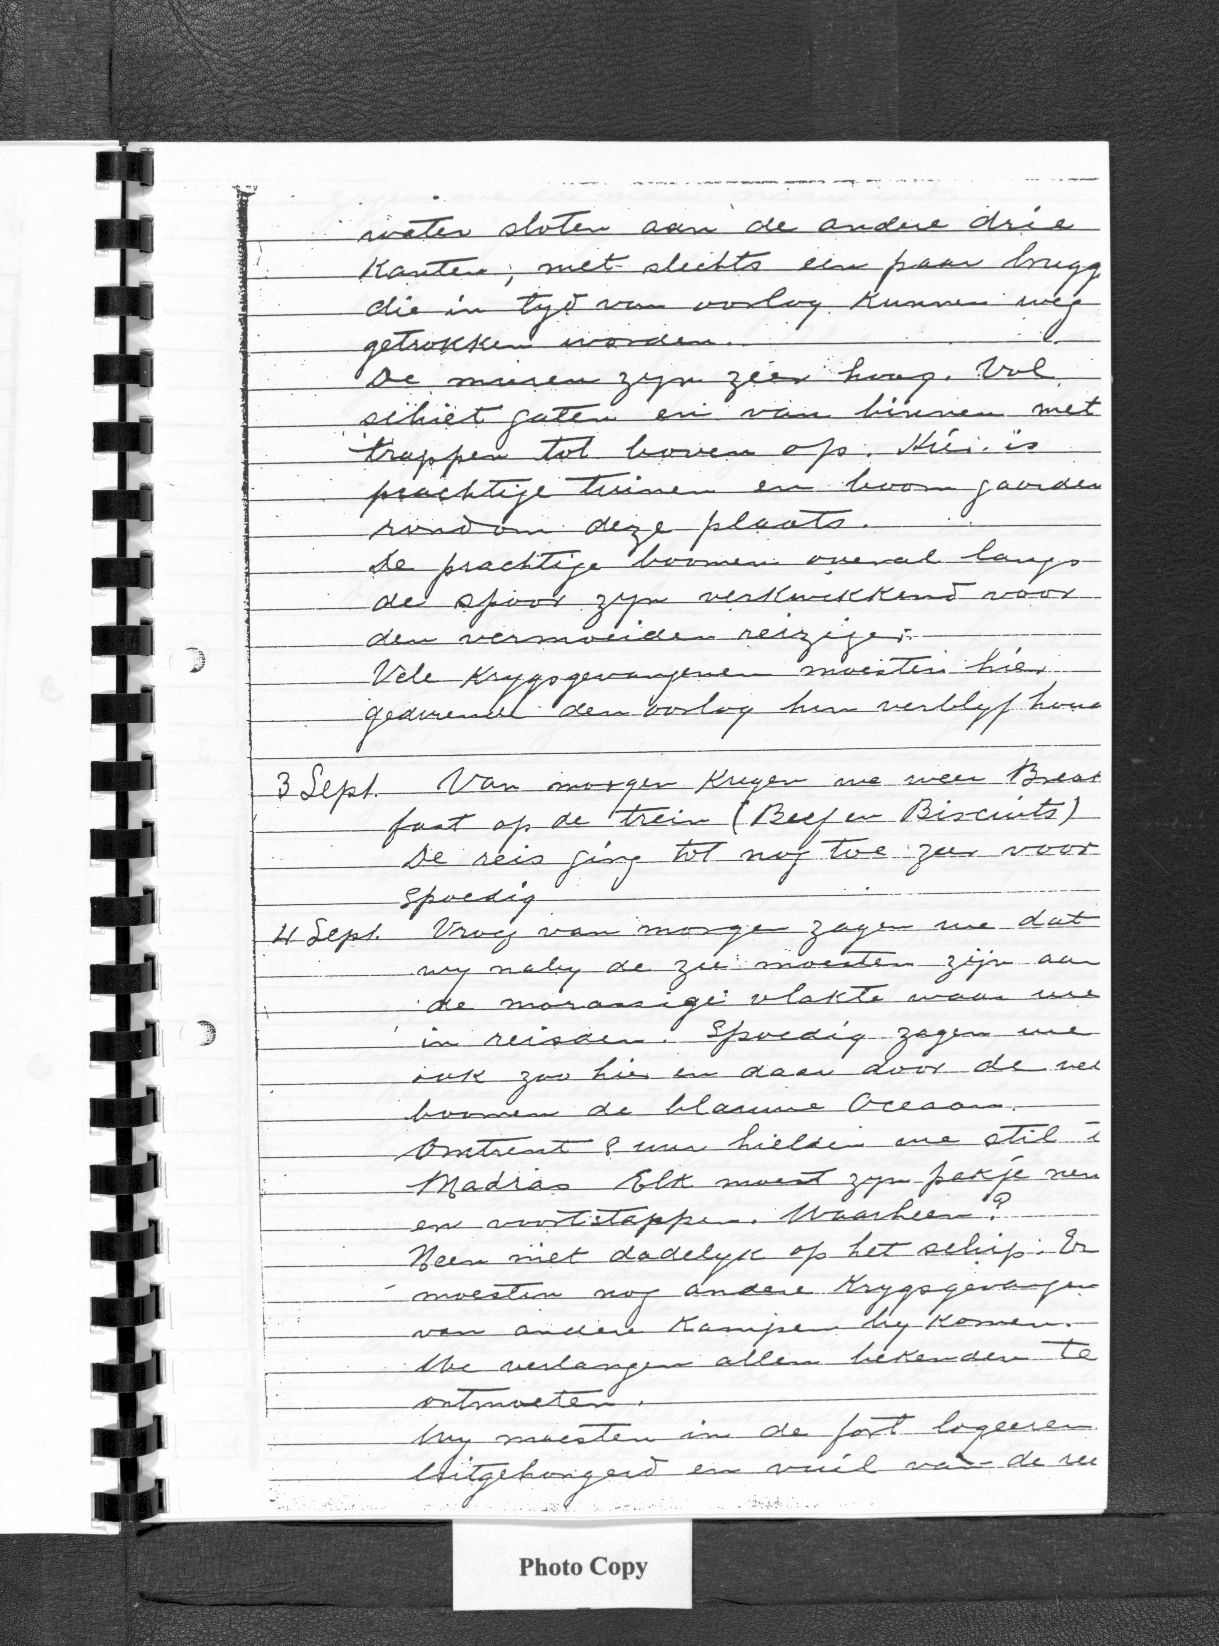 water sloten aan de andere drie
Kanten, met slechts een paar brugg
die in tyd van oorlog Kunnen weg
getrokken worden.
De muren zyn zeer hoog. Vol
schiet gaten en van binnen met
trappen tot boven op. Hier is
prachtige tuinen en boom gaarden
rondom deze plaats.
De prachtige boomen overal langs
de spoor zyn verkwikkend voor
den vermoeiden reiziger.
Vele Krygsgevangenen moesten hier
gedurende den oorlog hun verblyf houd
3 Sept. Van morgen Kregen we weer Break
fast op de trein (Beef en Biscuits)
De reis ging tot nog toe zeer voor
spoedig
4 Sept. Vroeg van morgen zagen we dat
wy naby de zee moesten zijn aan
de morassige vlakte waar we
in reisden. Spoedig zagen we
ook zoo hier en daar door de vel
boomen de blauwe Oceaan.
Omtrent 8 uur hielden we stil i
Madras Elk moest zyn pakje nem
en voortstappen. Waarheen?
Neen niet dadelyk op het schip. Er
moesten nog andere Krygsgevangen
van andere Kampen by komen.
We verlangen allen bekenden te
ontmoeten.
Wy moesten in de fort logeeren
Uitgehongerd en vuil van de rei
Photo Copy